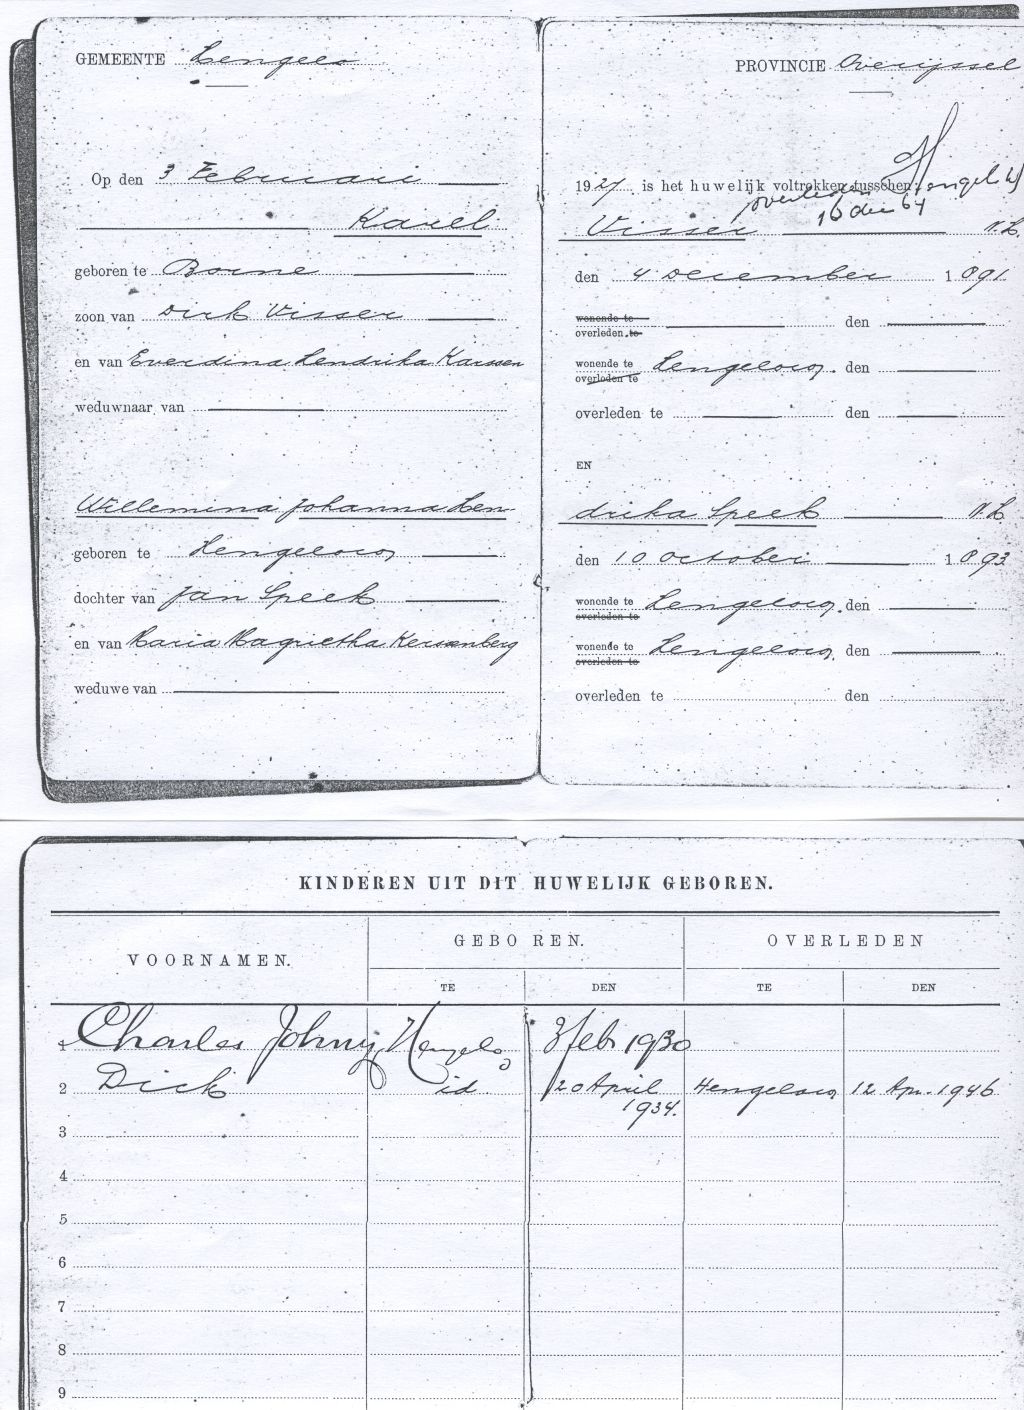 GEMEENTE Hengelo
Op den 3 Februari
Karel
geboren te Borne
zoon van Dirk Visser
en van Everdina Hendrika Karssen
weduwnaar van
Willemina Johanna Hen-
geboren te Hengeloo
dochter van Jan Speek
en van Maria Magrietha Kersenberg
weduwe van
PROVINCIE Overijssel
1927. is het huwelijk voltrokken tusschen:
overleden Hengelo
16 dec 64
Visser N.H.
den 4 December 1891
wonende te
overleden te den
wonende te
overleden te Hengeloo. den
overleden te den
EN
drika Speek N.H.
den 10 October 1893
wonende te
overleden te Hengeloo. den
wonende te
overleden te Hengeloo. den
overleden te den
KINDEREN UIT DIT HUWELIJK GEBOREN.
VOORNAMEN. GEBOREN. OVERLEDEN
TE DEN TE DEN
1 Charles Johny Hengelo 3 feb 1930
2 Dick id. 20 April 1934. Hengeloo 12 Apr. 1946
3
4
5
6
7
8
9